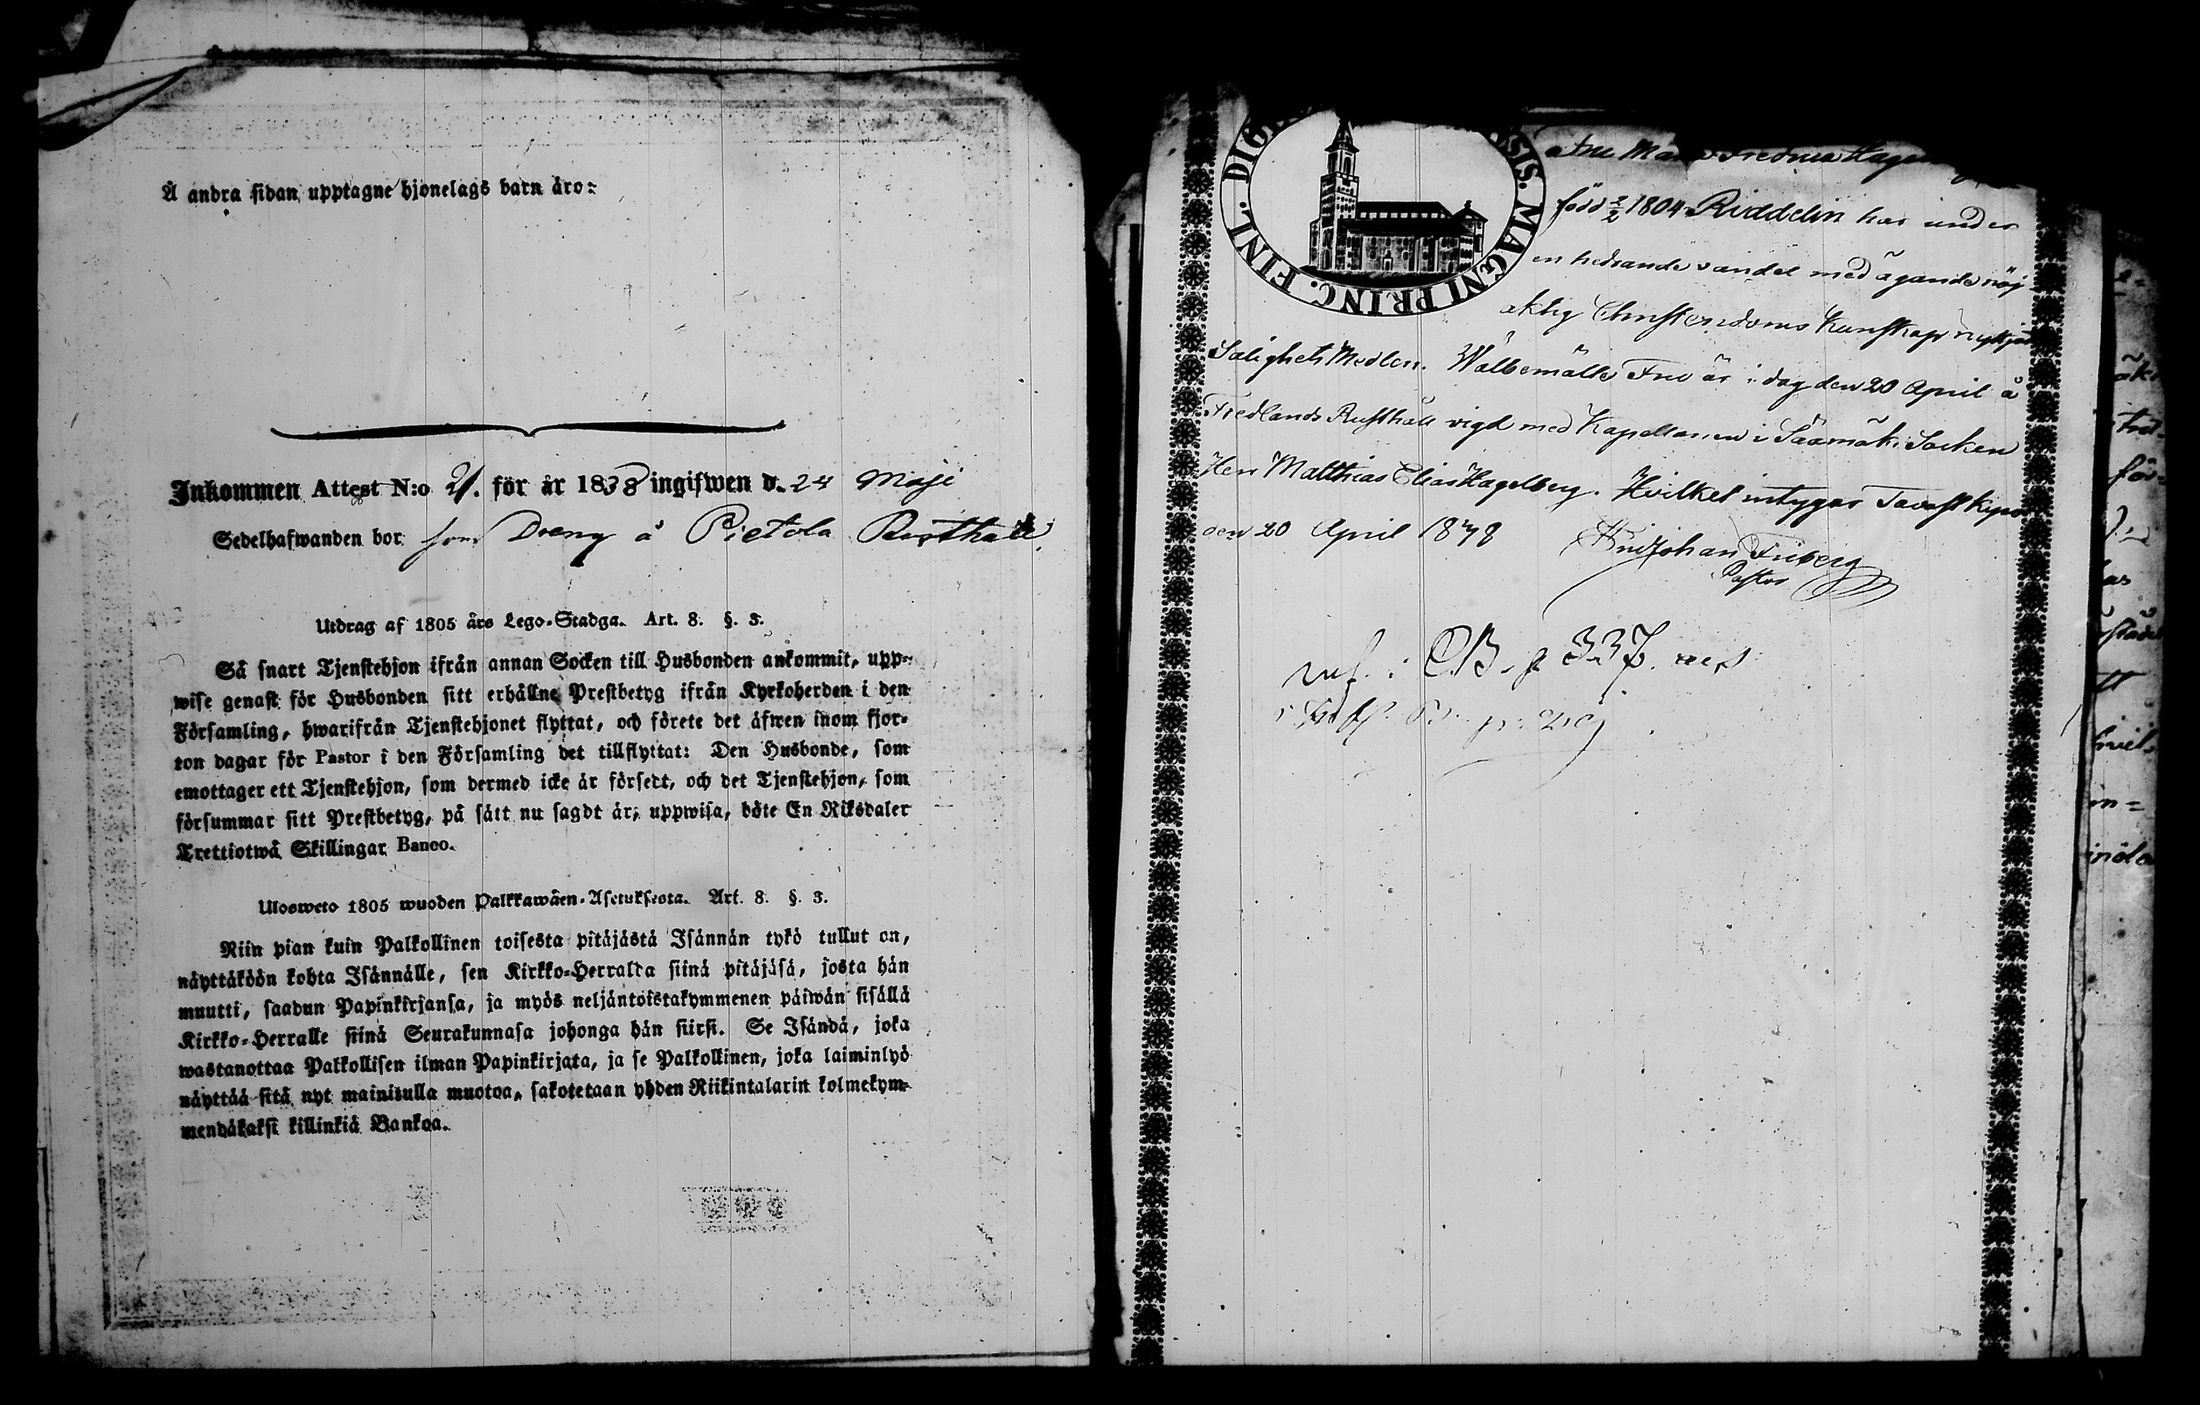 Å andra sidan upptagne hjonelags barn äro:
Inkommen Attest N:o 21. för år 1838 ingifwen d. 24 Maji
Sedelhafwanden bor som Dreng å Pietola Rusthåll.
Utdrag af 1805 års Lego-Stadga. Art. 8. §. 3.
Så snart Tjenstehjon ifrån annan Socken till Husbonden ankommit, upp-
wise genast för Husbonden sitt erhållne Prestbetyg ifrån Kyrkoherden i den
Församling, hwarifrån Tjenstehjonet flyttat, och förete det äfwen inom fjor-
ton dagar för Pastor i den Församling det tillflyttat: Den Husbonde, som
emottager ett Tjenstehjon, som dermed icke är försedt, och det Tjenstehjon, som
försummar sitt Prestbetyg, på sätt nu sagdt är, uppwisa, böte En Riksdaler
Trettiotwå Skillingar Banco.
Ulosweto 1805 wuoden Palkkawäen-Asetuksesta. Art. 8. §. 3.
Niin pian kuin Palkollinen toisesta pitäjästä Isännän tykö tullut on,
näyttäköön kohta Isännälle, sen Kirkko-Herralta siinä pitäjäsä, josta hän
muutti, saadun Papinkirjansa, ja myös neljäntoistakymmenen päiwän sisällä
Kirkko-Herralle siinä Seurakunnasa johonga hän siirsi. Se Isändä, joka
wastanottaa Palkollisen ilman Papinkirjata, ja se Palkollinen, joka laiminlyö
näyttää sitä nyt mainitulla muotoa, sakotetaan yhden Riikintalarin kolmekym-
mendäkaksi killinkiä Bankoa.
SIS. MAGNI PRINC. FINL. DIG
född 2/2 1804 Riddelin har under
en hedrande vandel med ägande nöj-
aktig Christendoms Kunskap nyttjat
Salighets Medlen. Wälbemälte Fru är i dag den 20 April å
Fredlands Rusthåll vigd med Kapellanen i Säämäki Socken
Herr Matthias Elias Hagelberg. Hvilket intygar Tavastkyro
den 20 April 1848
Johan Friberg
Pastor
inf. i C.B. p 337.